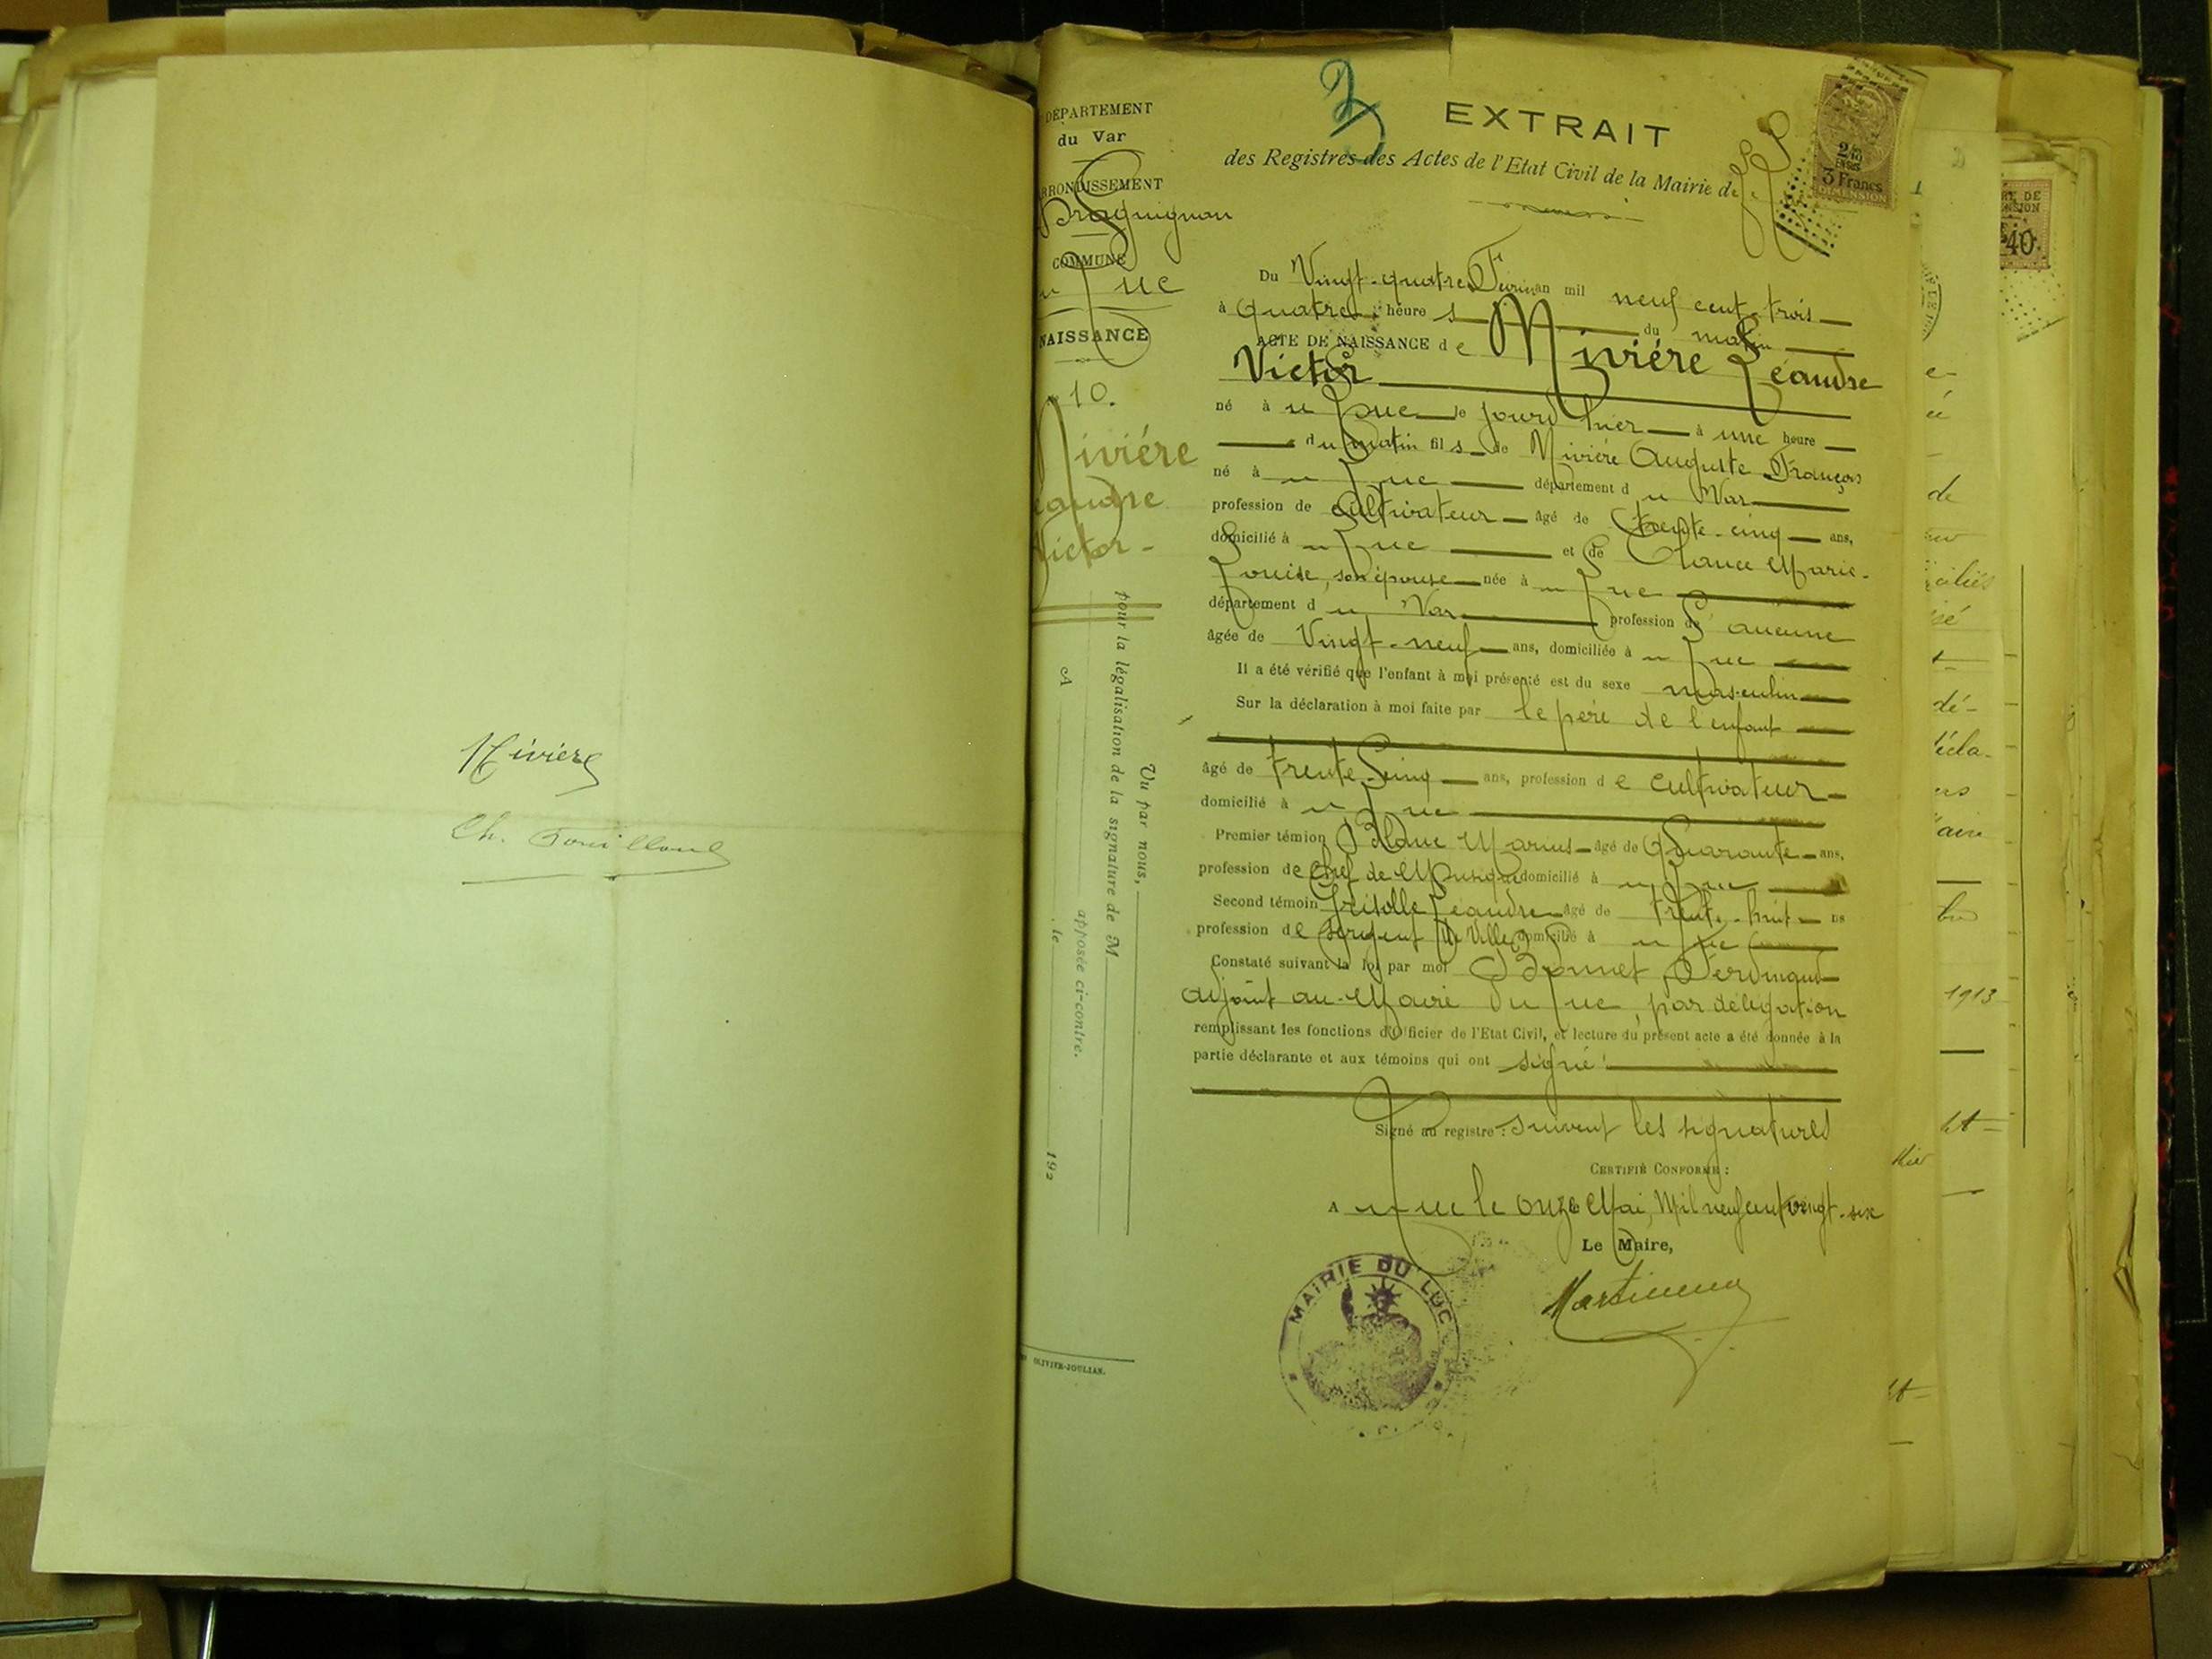 Ch.
DÉPARTEMENT
du Var
ARRONDISSEMENT
Draguignan
COMMUNE
du Luc
NAISSANCE
10.
Léandre
Victor
Vu par nous,
pour la légalisation de la signature de M
apposée ci-contre.
A le 192
OLIVIER-JOULIAN.
2
EXTRAIT
des Registres des Actes de l'Etat Civil de la Mairie de
3 Francs
Du Vingt-quatre Février an mil neuf cent trois
à quatre heure s du matin
ACTE DE NAISSANCE de Nivière Léandre
Victor
né à u Luc le jourd'hier à une heure
du matin fils de Nivière Auguste François
né à u Luc département du Var
profession de cultivateur âgé de trente-cinq ans,
domicilié à u Luc et de Marie-
Louise, son épouse née à u Luc
département du Var profession d' aucune
âgée de Vingt-neuf ans, domiciliée à u Luc
Il a été vérifié que l'enfant à moi présenté est du sexe masculin
Sur la déclaration à moi faite par le père de l'enfant
âgé de trente cinq ans, profession de cultivateur
domicilié à u Luc
Premier témion Blanc Marius âgé de Quarante ans,
profession de Chef de Musique domicilié à u Luc
Second témoin Grisolle Léandre âgé de trente-huit ns
profession de Sergent de Ville domicilié à u Luc
Constaté suivant la loi par moi Bonnet Ferdinand
adjoint au Maire du Luc, par délégation
remplissant les fonctions d'Officier de l'Etat Civil, et lecture du présent acte a été donnée à la
partie déclarante et aux témoins qui ont signé.
Signé au registre : suivent les signatures
CERTIFIÉ CONFORME :
A u Luc le onze Mai, Mil neuf cent vingt-six
Le Maire,
MAIRIE DU LUC
40
de
1913